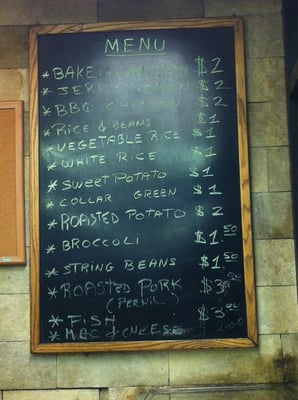 MENU
* BAKED CHICKEN $2
* JERK CHICKEN $2
* BBQ CHICKEN $2
* RICE & BEANS $1
* VEGETABLE RICE $1
* WHITE RICE $1
* SWEET POTATO $1
* COLLAR GREEN $1
* ROASTED POTATO $2
* BROCCOLI $1.50
* STRING BEANS $1.50
* ROASTED PORK $3.00
(PERNIL)
* FISH $3.00
* MAC & CHEESE 2.00